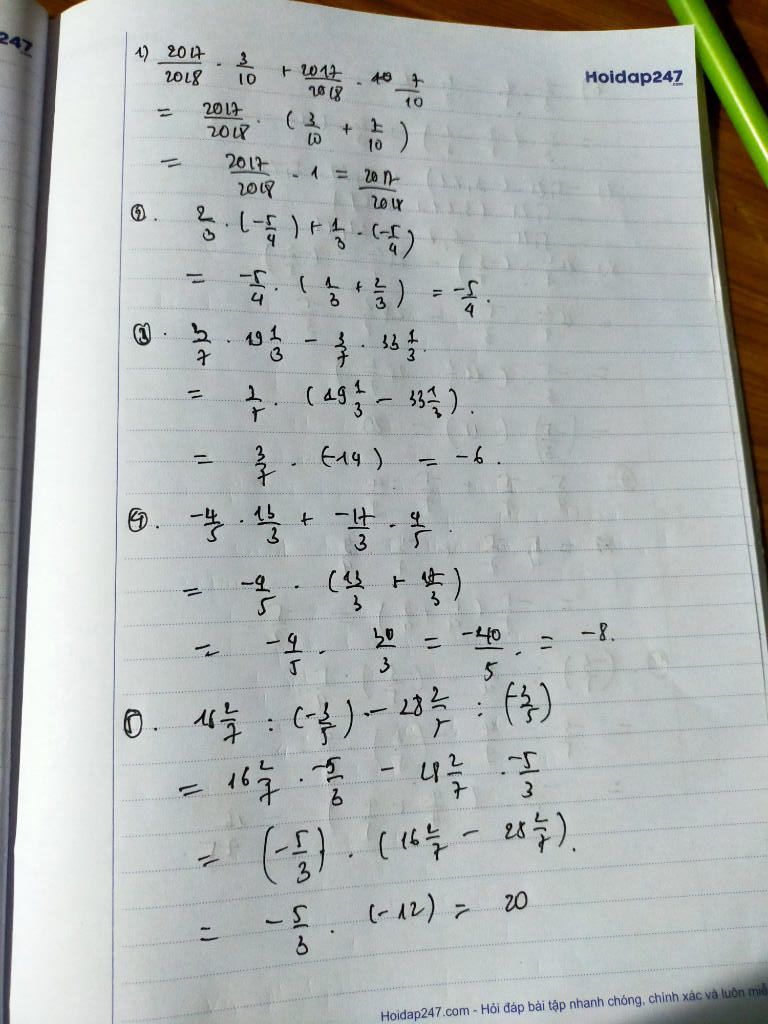 247
Hoidap247
.com
1) 2017/2018 · 3/10 + 2017/2018 · 7/10
= 2017/2018 · (3/10 + 7/10)
= 2017/2018 · 1 = 2017/2018
2. 2/3 · (-5/4) + 1/3 · (-5/4)
= -5/4 · (1/3 + 2/3) = -5/4.
3. 3/7 · 19 1/3 - 3/7 · 33 1/3.
= 3/7 · (19 1/3 - 33 1/3).
= 3/7 · (-14) = -6.
4. -4/5 · 13/3 + -17/3 · 4/5.
= -4/5 · (13/3 + 17/3)
= -4/5 · 30/3 = -40/5 · = -8.
5. 16 2/7 : (-3/5) - 28 2/7 : (-3/5)
= 16 2/7 · -5/3 - 28 2/7 · -5/3
= (-5/3) · (16 2/7 - 28 2/7).
= -5/3 · (-12) = 20
Hoidap247.com - Hỏi đáp bài tập nhanh chóng, chính xác và luôn miễ